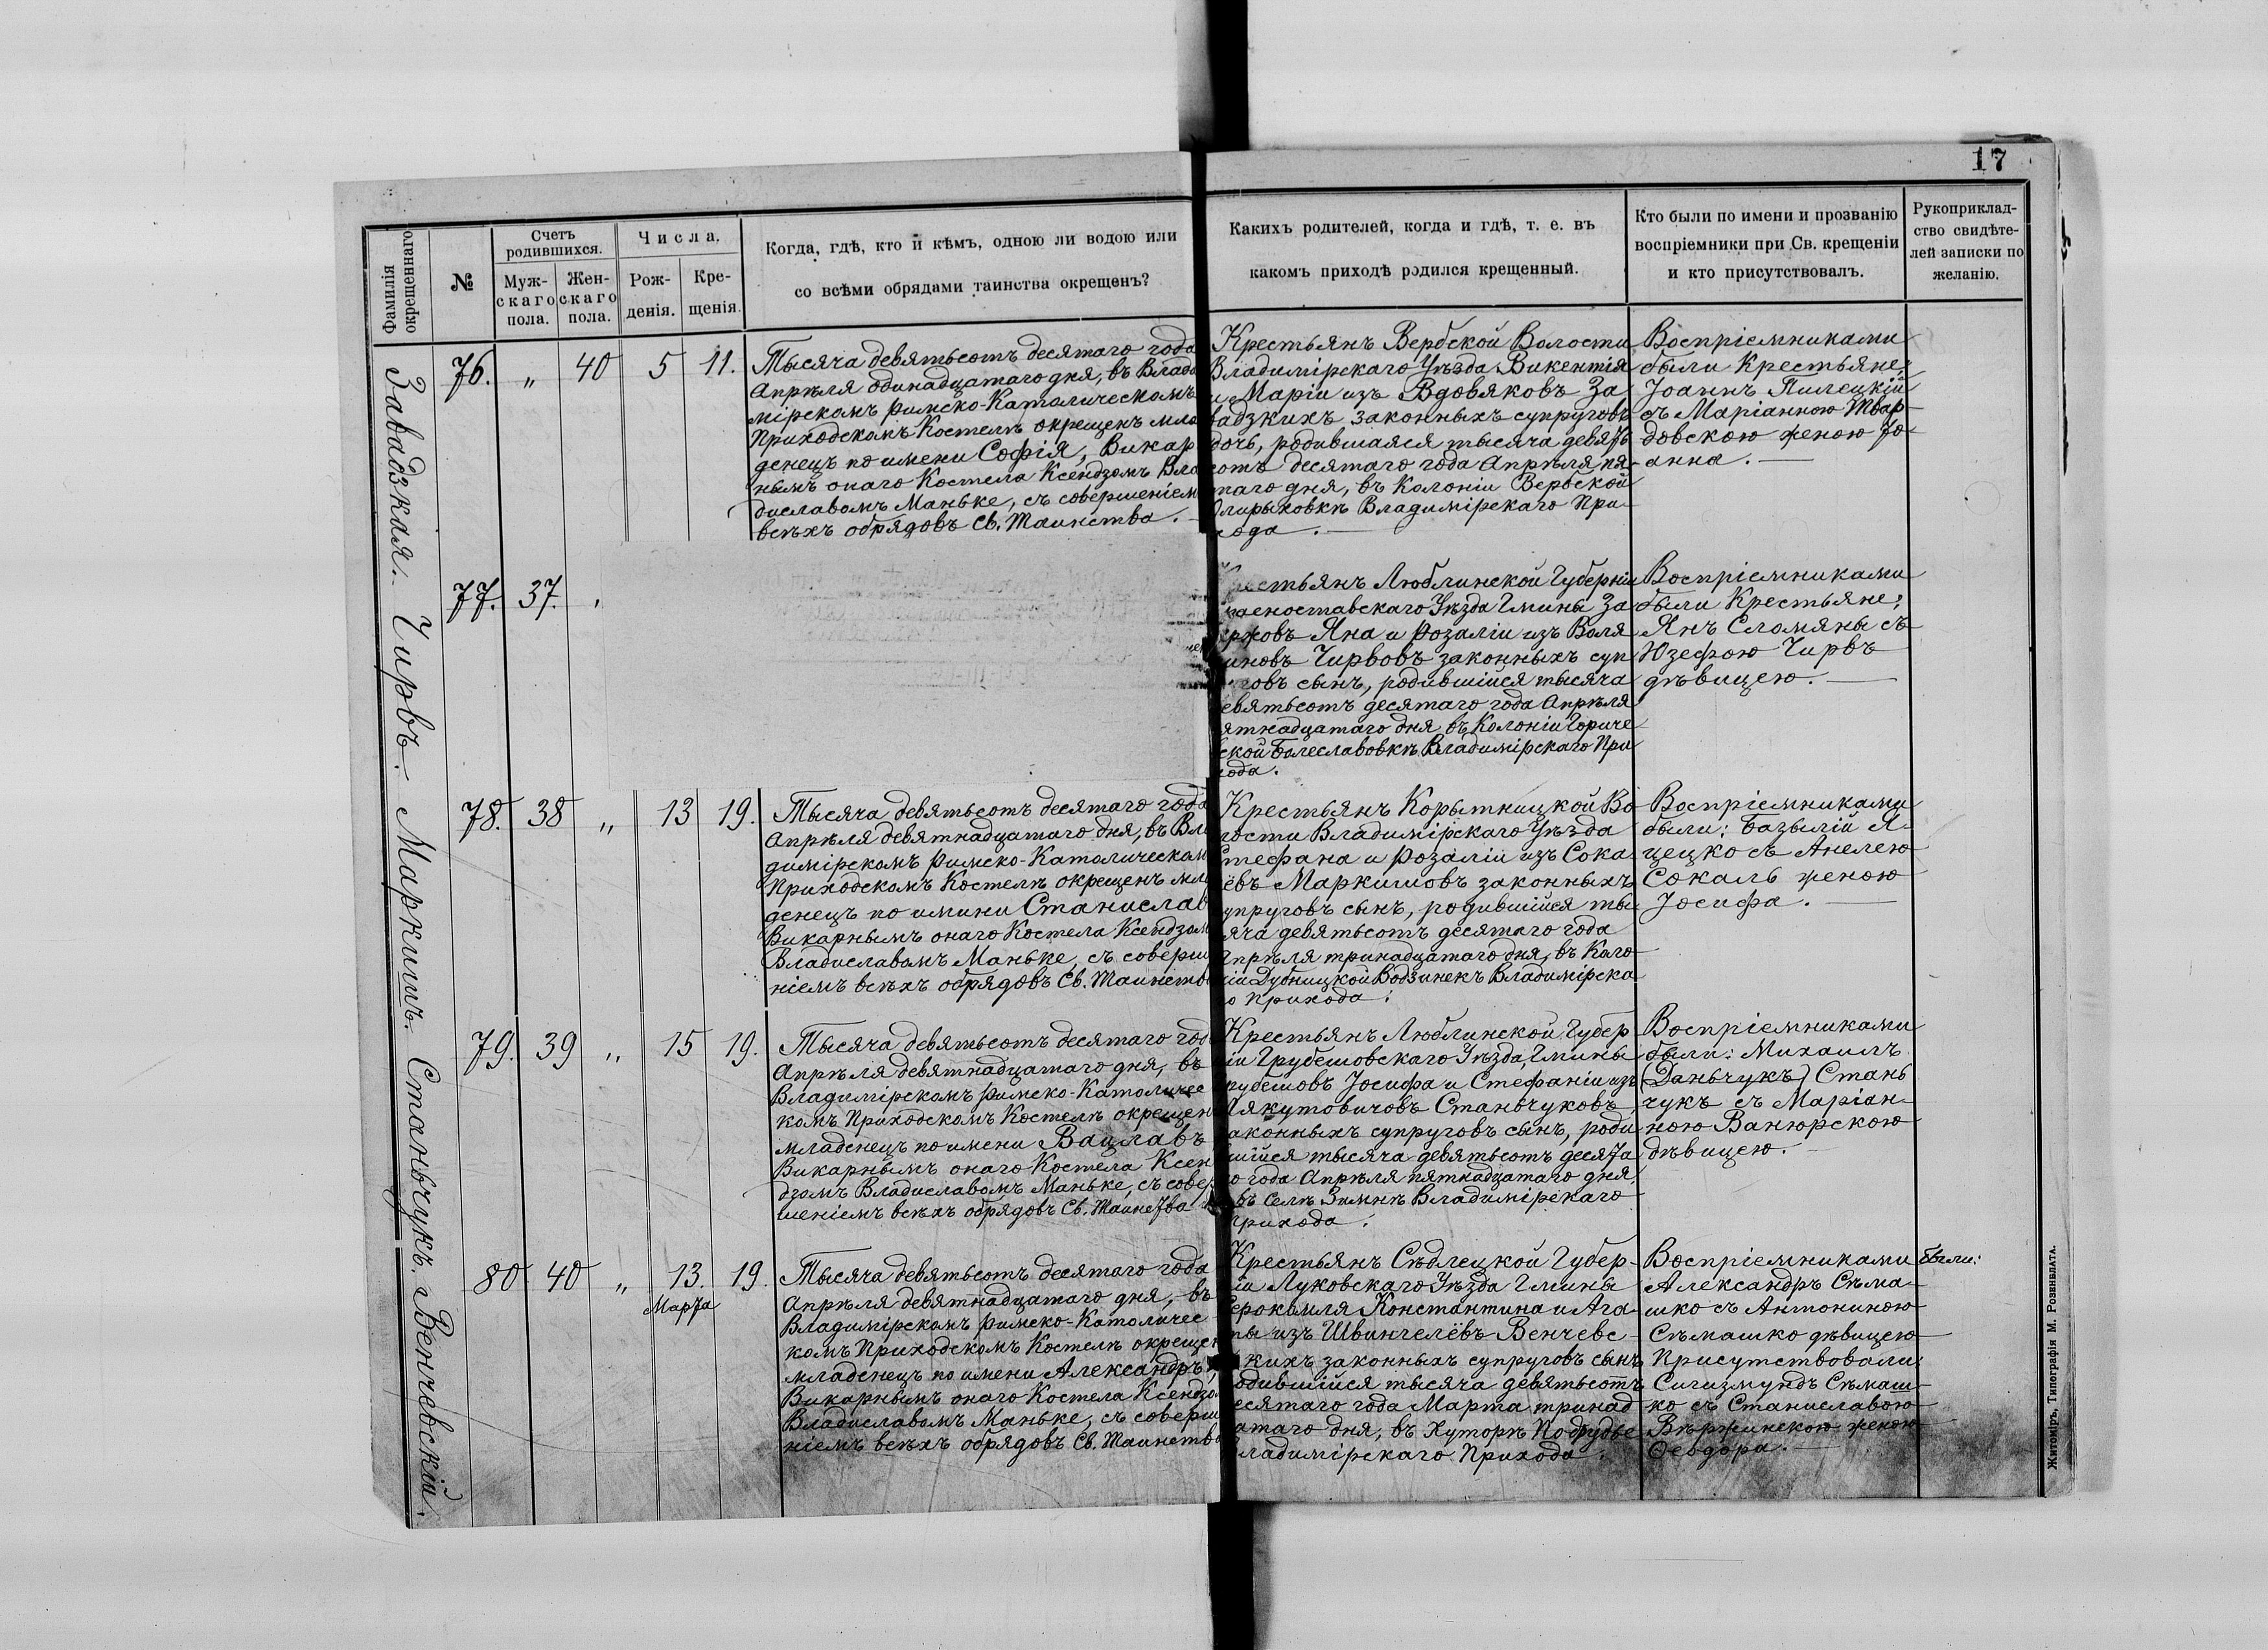 17
Фамилія
окрещеннаго
№
Счетъ
родившихся.
Муж-
скаго
пола.
Жен-
скаго
пола.
Числа.
Рож-
денія.
Кре-
щенія.
Когда, гдѣ, кто и кѣмъ, одною ли водою или
со всѣми обрядами таинства окрещенъ?
Какихъ родителей, когда и гдѣ, т. е. въ
какомъ приходѣ родился крещенный.
Кто были по имени и прозванію
воспріемники при Св. крещеніи
и кто присутствовалъ.
Рукоприклад-
ство свидѣте-
лей записки по
желанію.
Завадзкая.
76. „ 40 5 11.
Тысяча девятьсотъ десятаго года
Апрѣля одинадцатаго дня, въ Влади
мірскомъ Римско-Католическомъ
Приходскомъ Костелѣ окрещенъ мла
денецъ по имени Софія, Викар
нымъ онаго Костела Ксендзомъ Вла
диславомъ Маньке, съ совершеніемъ
всѣхъ обрядовъ Св. Таинства. —
Крестьянъ Вербской Волости
Владимірскаго Уѣзда Викентія
и Маріи изъ Вдовяковъ За
вадзкихъ законныхъ супруговъ
дочь, родившаяся тысяча девять
сотъ десятаго года Апрѣля пя-
таго дня, въ Колоніи Вербской
Владимірскаго При-
хода. —
Воспріемниками
были Крестьяне:
Іоаннъ Пилецкій
съ Маріанною Твар-
довскою женою Іо-
анна. —
Чирвъ.
77. 37.
Крестьянъ Люблинской Губерніи
Красноставскаго Уѣзда Гмины За
Яна и Розаліи изъ Воля
новъ Чирвовъ законныхъ суп
говъ сынъ, родившійся тысяча
девятьсотъ десятаго года Апрѣля
ятнадцатаго дня въ Колоніи Гориче
ской Болеславовкѣ Владимірскаго При
хода.
Воспріемниками
были Крестьяне:
Янъ Сломяны съ
Юзефою Чирвъ
дѣвицею. —
Маркишъ.
78. 38 „ 13 19.
Тысяча девятьсотъ десятаго года
Апрѣля девятнадцатаго дня, въ Вла
димірскомъ Римско-Католическом
Приходскомъ Костелѣ окрещенъ мла
денецъ по имини Станислав
Викарнымъ онаго Костела Ксендзом
Владиславомъ Маньке, съ соверше
ніемъ всѣхъ обрядовъ Св. Таинства
Крестьянъ Корытницкой Во
лости Владимірскаго Уѣзда
Стефана и Розаліи изъ Сока
лёвъ Маркишовъ законныхъ
супруговъ сынъ, родившійся ты
сяча девятьсотъ десятаго года
Апрѣля тринадцатаго дня, въ Коло
ніи Дубницкой Водзинекъ Владимірска
го Прихода.
Воспріемниками
были: Базылій Я-
цецко съ Анелею
Сокаль женою
Іосифа. —
Станьчукъ.
79. 39 „ 15 19.
Тысяча девятьсотъ десятаго год
Апрѣля девятнадцатаго дня, въ
Владимірскомъ Римско-Католичес
комъ Приходскомъ Костелѣ окрещен
младенецъ по имени Вацлавъ
Викарнымъ онаго Костела Ксен
дзомъ Владиславомъ Маньке, съ совер
шеніемъ всѣхъ обрядовъ Св. Таинства
Крестьянъ Люблинской Губер
ніи Грубешовскаго Уѣзда, Гмины
Грубешовъ Іосифа и Стефаніи изъ
Якутовичовъ Станьчуковъ
законныхъ супруговъ сынъ, роди
вшійся тысяча девятьсотъ десята
го года Апрѣля пятнадцатаго дня,
въ селѣ Зимнѣ Владимірскаго
Прихода.
Воспріемниками
были: Михаилъ
(Даньчукъ) Стань
чукъ съ Маріан-
ною Ванюрскою
дѣвицею. —
Венчевскій.
80 40 „ 13. 19.
Марта
Тысяча девятьсотъ десятаго года
Апрѣля девятнадцатаго дня, въ
Владимірскомъ Римско-Католичес
комъ Приходскомъ Костелѣ окрещен
младенецъ по имени Александръ,
Викарнымъ онаго Костела Ксендзо
Владиславомъ Маньке, съ соверше
ніемъ всѣхъ обрядовъ Св. Таинства
Крестьянъ Сѣдлецкой Губер-
ніи Луковскаго Уѣзда Гмины
Серокомля Константина и Ага-
ты изъ Швинчелёвъ Венчевс-
кихъ законныхъ супруговъ сынъ
родившійся тысяча девятьсотъ
десятаго года Марта тринад
цатаго дня, въ Хуторѣ Подрудье
Владимірскаго Прихода.
Воспріемниками были:
Александръ Сѣма-
шко съ Антониною
Сѣмашко дѣвицею
Присутствовали:
Сигизмундъ Сѣмаш-
ко съ Станиславою
Вѣржинскою женою
Ѳеодора. —
Житоміръ, Типографія М. Розенблата.